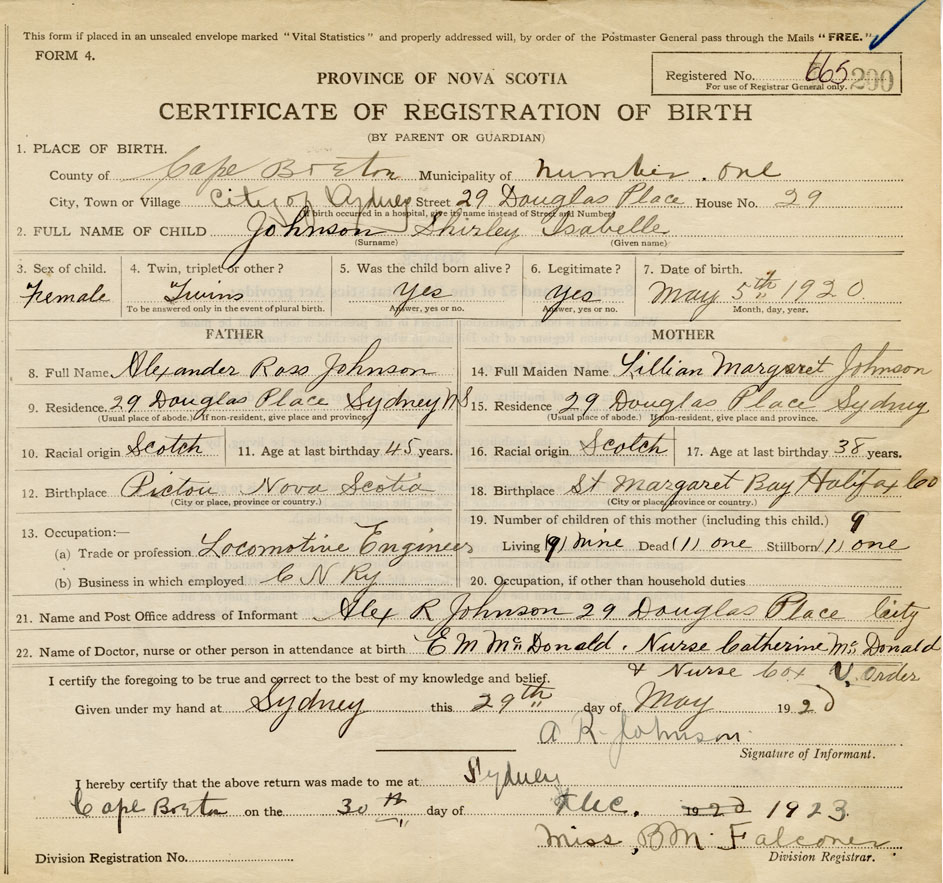 This form if placed in an unsealed envelope marked "Vital Statistics" and properly addressed will, by order of the Postmaster General pass through the Mails "FREE."
FORM 4.
Registered No. 665 200
For use of Registrar General only.
PROVINCE OF NOVA SCOTIA
CERTIFICATE OF REGISTRATION OF BIRTH
(BY PARENT OR GUARDIAN)
1. PLACE OF BIRTH.
County of Cape Breton Municipality of Number. one
City, Town or Village City of Sydney Street 29 Douglas Place House No. 29
(If birth occurred in a hospital, give its name instead of Street and Number)
2. FULL NAME OF CHILD Johnson Shirley Isabelle
(Surname) (Given name)
3. Sex of child. 4. Twin, triplet or other? 5. Was the child born alive? 6. Legitimate? 7. Date of birth.
Female Twins Yes Yes May 5th 1920.
To be answered only in the event of plural birth. Answer, yes or no. Answer, yes or no. Month, day, year.
FATHER
8. Full Name Alexander Ross Johnson
9. Residence. 29 Douglas Place Sydney NS
(Usual place of abode.) If non-resident, give place and province.
10. Racial origin Scotch 11. Age at last birthday 45 years.
12. Birthplace Pictou Nova Scotia
(City or place, province or country.)
13. Occupation:—
(a) Trade or profession Locomotive Engineer
(b) Business in which employed C N Ry
MOTHER
14. Full Maiden Name Lillian Margaret Johnson
15. Residence 29 Douglas Place Sydney
(Usual place of abode.) If non-resident, give place and province.
16. Racial origin Scotch 17. Age at last birthday 38 years.
18. Birthplace St Margaret Bay Halifax Co
(City or place, province or country.)
19. Number of children of this mother (including this child.) 9
Living (9) nine Dead (1) one Stillborn (1) one
20. Occupation, if other than household duties
21. Name and Post Office address of Informant Alex R Johnson 29 Douglas Place City
22. Name of Doctor, nurse or other person in attendance at birth E M McDonald. Nurse Catherine McDonald
& Nurse Cox V. Order
I certify the foregoing to be true and correct to the best of my knowledge and belief.
Given under my hand at Sydney this 29th day of May 1920
A R Johnson
Signature of Informant.
I hereby certify that the above return was made to me at Sydney
Cape Breton on the 30th day of Dec. 1920 1923.
Miss B M. Falconer
Division Registration No. Division Registrar.